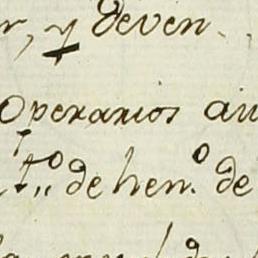 r, y deven
Operarios au
t,,º de hen.º de